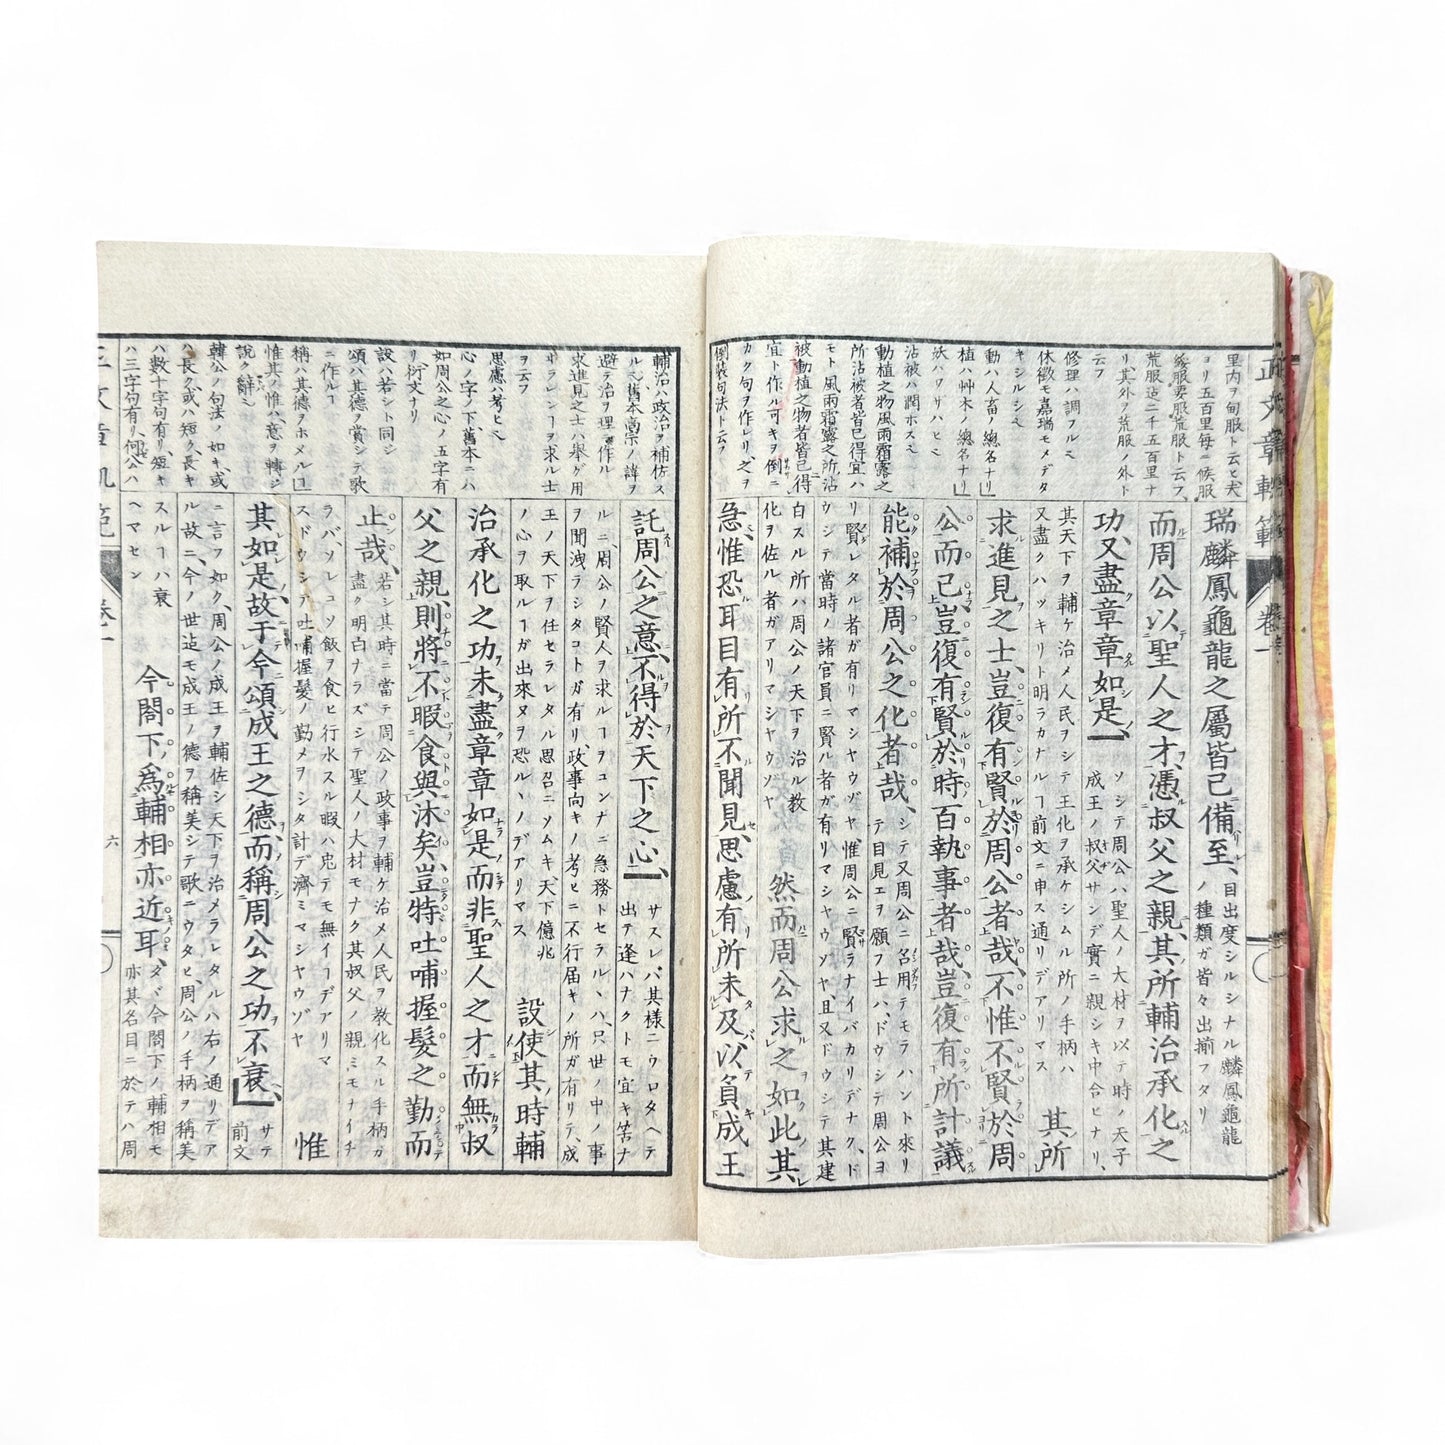 瑞麟鳳龜龍之屬皆已備至、目出度シルシナル麟鳳龜龍ノ種類ガ皆々出揃フタリ
而周公以聖人之才、憑叔父之親、其所輔治承化之
功、又盡章章如是、ソシテ周公ハ聖人ノ大材ヲ以テ時ノ天子成王ノ叔父サンデ實ニ親シキ中合ヒナリ、
其天下ヲ輔ケ治メ人民ヲシテ王化ヲ承ケシムル所ノ手柄ハ又盡クハツキリト明ラカナルヿ前文ニ申ス通リデアリマス 其所
求進見之士、豈復有賢於周公者哉、不惟不賢於周
公而已、豈復有賢於時百執事者哉、豈復有所計議
能補於周公之化者哉、シテ又周公ニ名用テモラハント來リテ目見エヲ願フ士ハ、ドウシテ周公ヨ
リ賢レタル者ガ有リマシヤウゾヤ惟周公ニ賢ラナイバカリデナク、ドウシテ當時ノ諸官員ニ賢ル者ガ有リマシヤウゾヤ、且又ドウシテ其建
白スル所ハ周公ノ天下ヲ治ル教化ヲ佐ル者ガアリマシヤウソヤ 然而周公求之如此其
急、惟恐耳目有所不聞見、思慮有所未及、以負成王
里内ヲ甸服ト云ヒ夫
ヨリ五百里毎ニ候服
綏服要服荒服ト云フ、
荒服迄二千五百里ナ
リ、其外ヲ荒服ノ外ト
云フ
修理ハ調フルヿ
休徴モ嘉瑞モメデタ
キシルシヿ
動ハ人畜ノ總名ナリ
植ハ艸木ノ總名ナリ
妖ハワサハヒヿ
沾被ハ潤ホスヿ
動植之物風雨霜露之
所沾被者皆已得宜ハ
モト風雨霜露之所沾
被動植之物者皆已得
宜ト作ル可キヲ倒ニ
カク句ヲ作レリ、之ヲ
倒裝句法ト云フ
正文章軌範 卷一
託周公之意、不得於天下之心、サスレバ其樣ニウロタヘテ出テ逢ハナクトモ宜キ苦ナ
ルニ、周公ノ賢人ヲ求ルヿヲコンナニ急務トセラル、ハ、只世ノ中ノ事ヲ聞洩ラシタコトガ有リ、政事向キノ考ヒニ不行届キノ所ガ有リテ、成
王ノ天下ヲ任セラレタル思召ニソムキ、天下億兆ノ心ヲ取ルヿガ出來ヌヲ恐ル、ノデアリマス 設使其時輔
治承化之功、未盡章章如是、而非聖人之才、而無叔
父之親、則將不暇食與沐矣、豈特吐哺握髮之勤而
止哉、若シ其時ニ當テ周公ノ政事ヲ輔ケ治メ人民ヲ教化スル手柄ガ盡ク明白ナラズシテ聖人ノ大材モナク其叔父ノ親ミモナイチ
ラバ、ソレコソ飯ヲ食ヒ行水スル暇ハ迚テモ無イヿデアリマスドウシテ吐哺握髮ノ勤メヲシタ計デ濟ミマシヤウゾヤ 惟
其如是、故于今頌成王之德、而稱周公之功不衰、サテ前文
ニ言フ如ク、周公ノ成王ヲ輔佐シ天下ヲ治メラレタルハ右ノ通リデアル故ニ、今ノ世迄モ成王ノ德ヲ稱美シテ歌ニウタヒ、周公ノ手柄ヲ稱美
スルヿハ衰ヘマセン 今閤下、爲輔相亦近耳、タヾ今閤下ノ輔相モ亦其名目ニ於テハ周
輔治ハ政治ヲ補佐ス
ルヿ舊本高宗ノ諱ヲ
避テ治ヲ理ニ作ル
求進見之士ハ擧ゲ用
サランヿヲ求ル士
ヲ云フ
思慮ハ考ヒヿ
心ノ字ノ下、舊本ニハ
如周公之心ノ五字有
リ衍文ナリ
設ハ若シト同シ
頌ハ其德ヲ賞シテ歌
ニ作ルヿ
稱ハ其德ヲホメルヿ
惟其ノ惟ハ、意ヲ轉ジ
說ク辭ヿ
韓公ノ句法ノ如キ、或
ハ長ク、或ハ短ク、長キ
ハ數十字句有リ、短キ
ハ三字句有リ、何公ハ
卷一
六